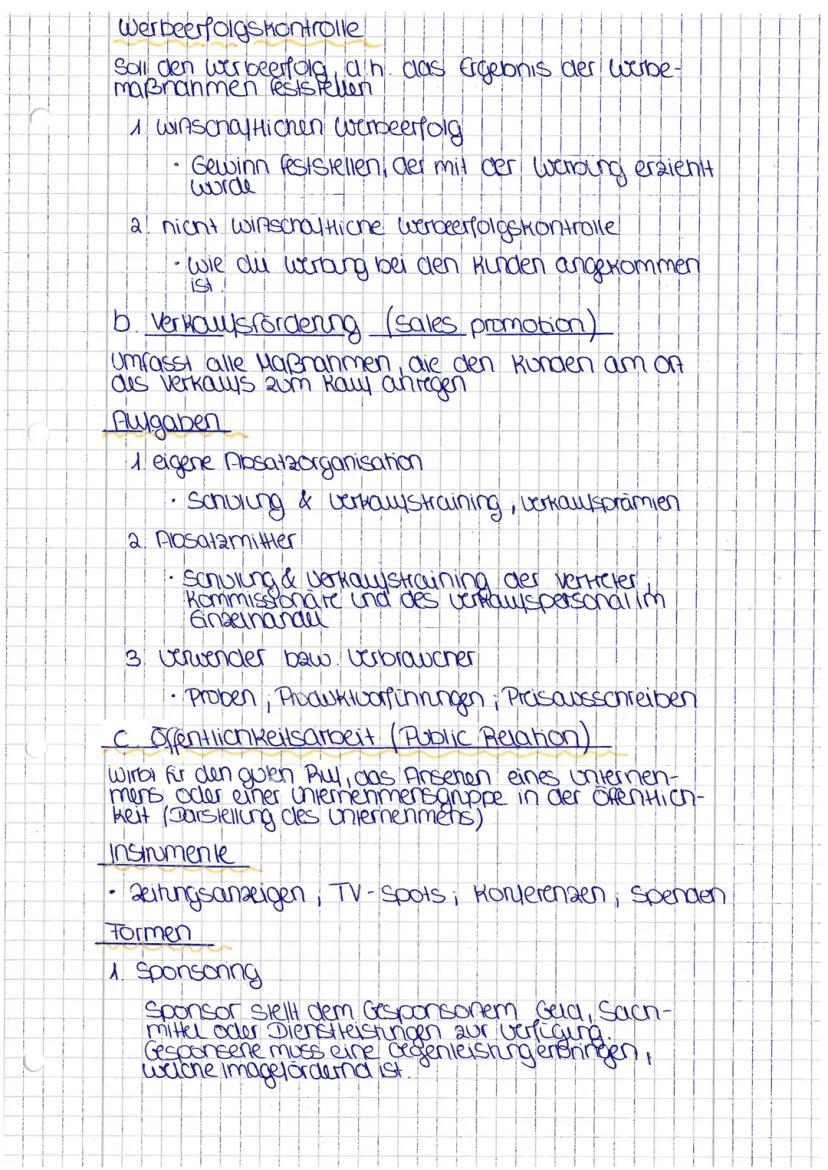 Werbeerfolgskontrolle
Soll den Werbeerfolg, d.h. das Ergebnis der Werbe-
maßnahmen feststellen
1. wirtschaftlichen Werbeerfolg
· Gewinn feststellen, der mit der Werbung erziehlt
wurde
2. nicht wirtschaftliche Werbeerfolgskontrolle
· Wie die Werbung bei den Kunden angekommen
ist.
b. Verkaufsförderung (Sales promotion)
Umfasst alle Maßnahmen, die den Kunden am Ort
des Verkaufs zum Kauf anregen
Aufgaben
1. eigene Absatzorganisation
· Schulung & Verkaufstraining, Verkaufsprämien
2. Absatzmittler
· Schulung & Verkaufstraining der Vertreter,
Kommissionäre und des Verkaufspersonal im
Einzelhandel
3. Verwender bzw. Verbraucher
· Proben, Produktvorführungen, Preisausschreiben
c. Öffentlichkeitsarbeit (Public Relation)
Wirbt für den guten Ruf, das Ansehen eines Unterneh-
mens oder einer Unternehmensgruppe in der Öffentlich-
keit (Darstellung des Unternehmens)
Instrumente
· Zeitungsanzeigen, TV-Spots, Konferenzen, Spenden
Formen
1. Sponsoring
Sponsor stellt dem Gesponsorem Geld, Sach-
mittel oder Dienstleistungen zur Verfügung.
Gesponserte muss eine Gegenleistung erbringen,
welche imagefördernd ist.